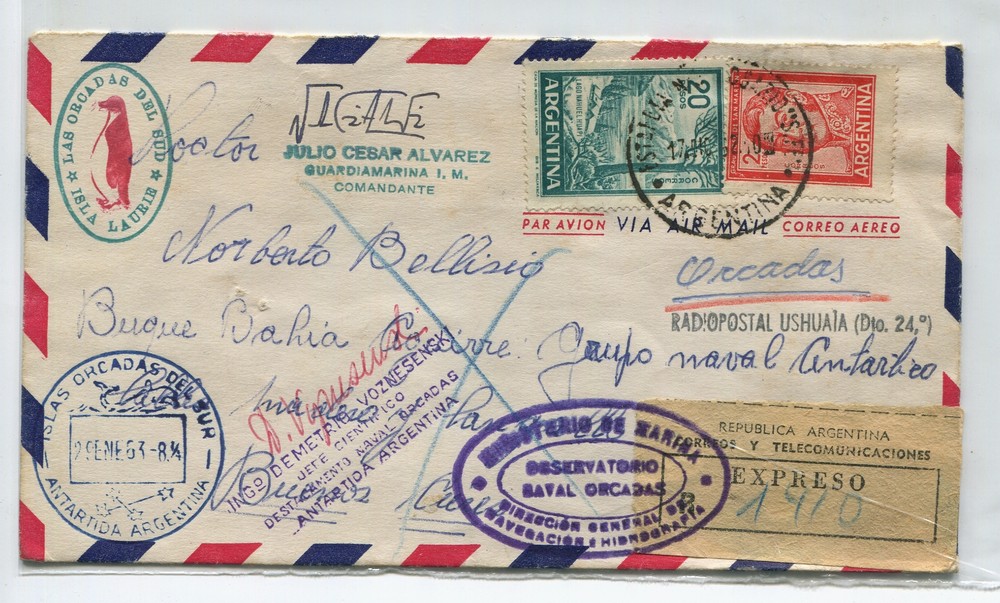 ★ LAS ORCADAS DEL SUD ★
ISLA LAURIE
JULIO CESAR ALVAREZ
GUARDIAMARINA I. M.
COMANDANTE
ARGENTINA
20
PESOS
LAGO NAHUEL HUAPI
CORREOS
ARGENTINA
ARGENTINA
PAR AVION VIA AIR MAIL CORREO AEREO
Doctor
Norberto Bellisio
Buque Bahia Aguirre: Grupo naval Antartico
Buenos
Orcadas
RADIOPOSTAL USHUAIA (Dto. 24,°)
ISLAS ORCADAS DEL SUR
29ENE63-8¼
ANTARTIDA ARGENTINA
INGº DEMETRIO VOZNESENSKI
JEFE CIENTIFICO
DESTACAMENTO NAVAL ORCADAS
ANTARTIDA ARGENTINA
MINISTERIO DE MARINA
OBSERVATORIO
NAVAL ORCADAS
DIRECCIÓN GENERAL DE
NAVEGACION E HIDROGRAFIA
REPUBLICA ARGENTINA
CORREOS Y TELECOMUNICACIONES
EXPRESO
1410